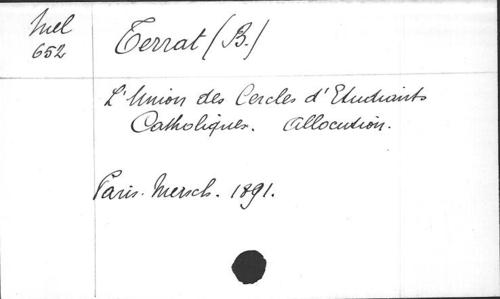 Mel
652
Terrat (B.)
L'Union des Cercles d'Etudiants
Catholiques. Allocution.
Paris. Mersch. 1891.